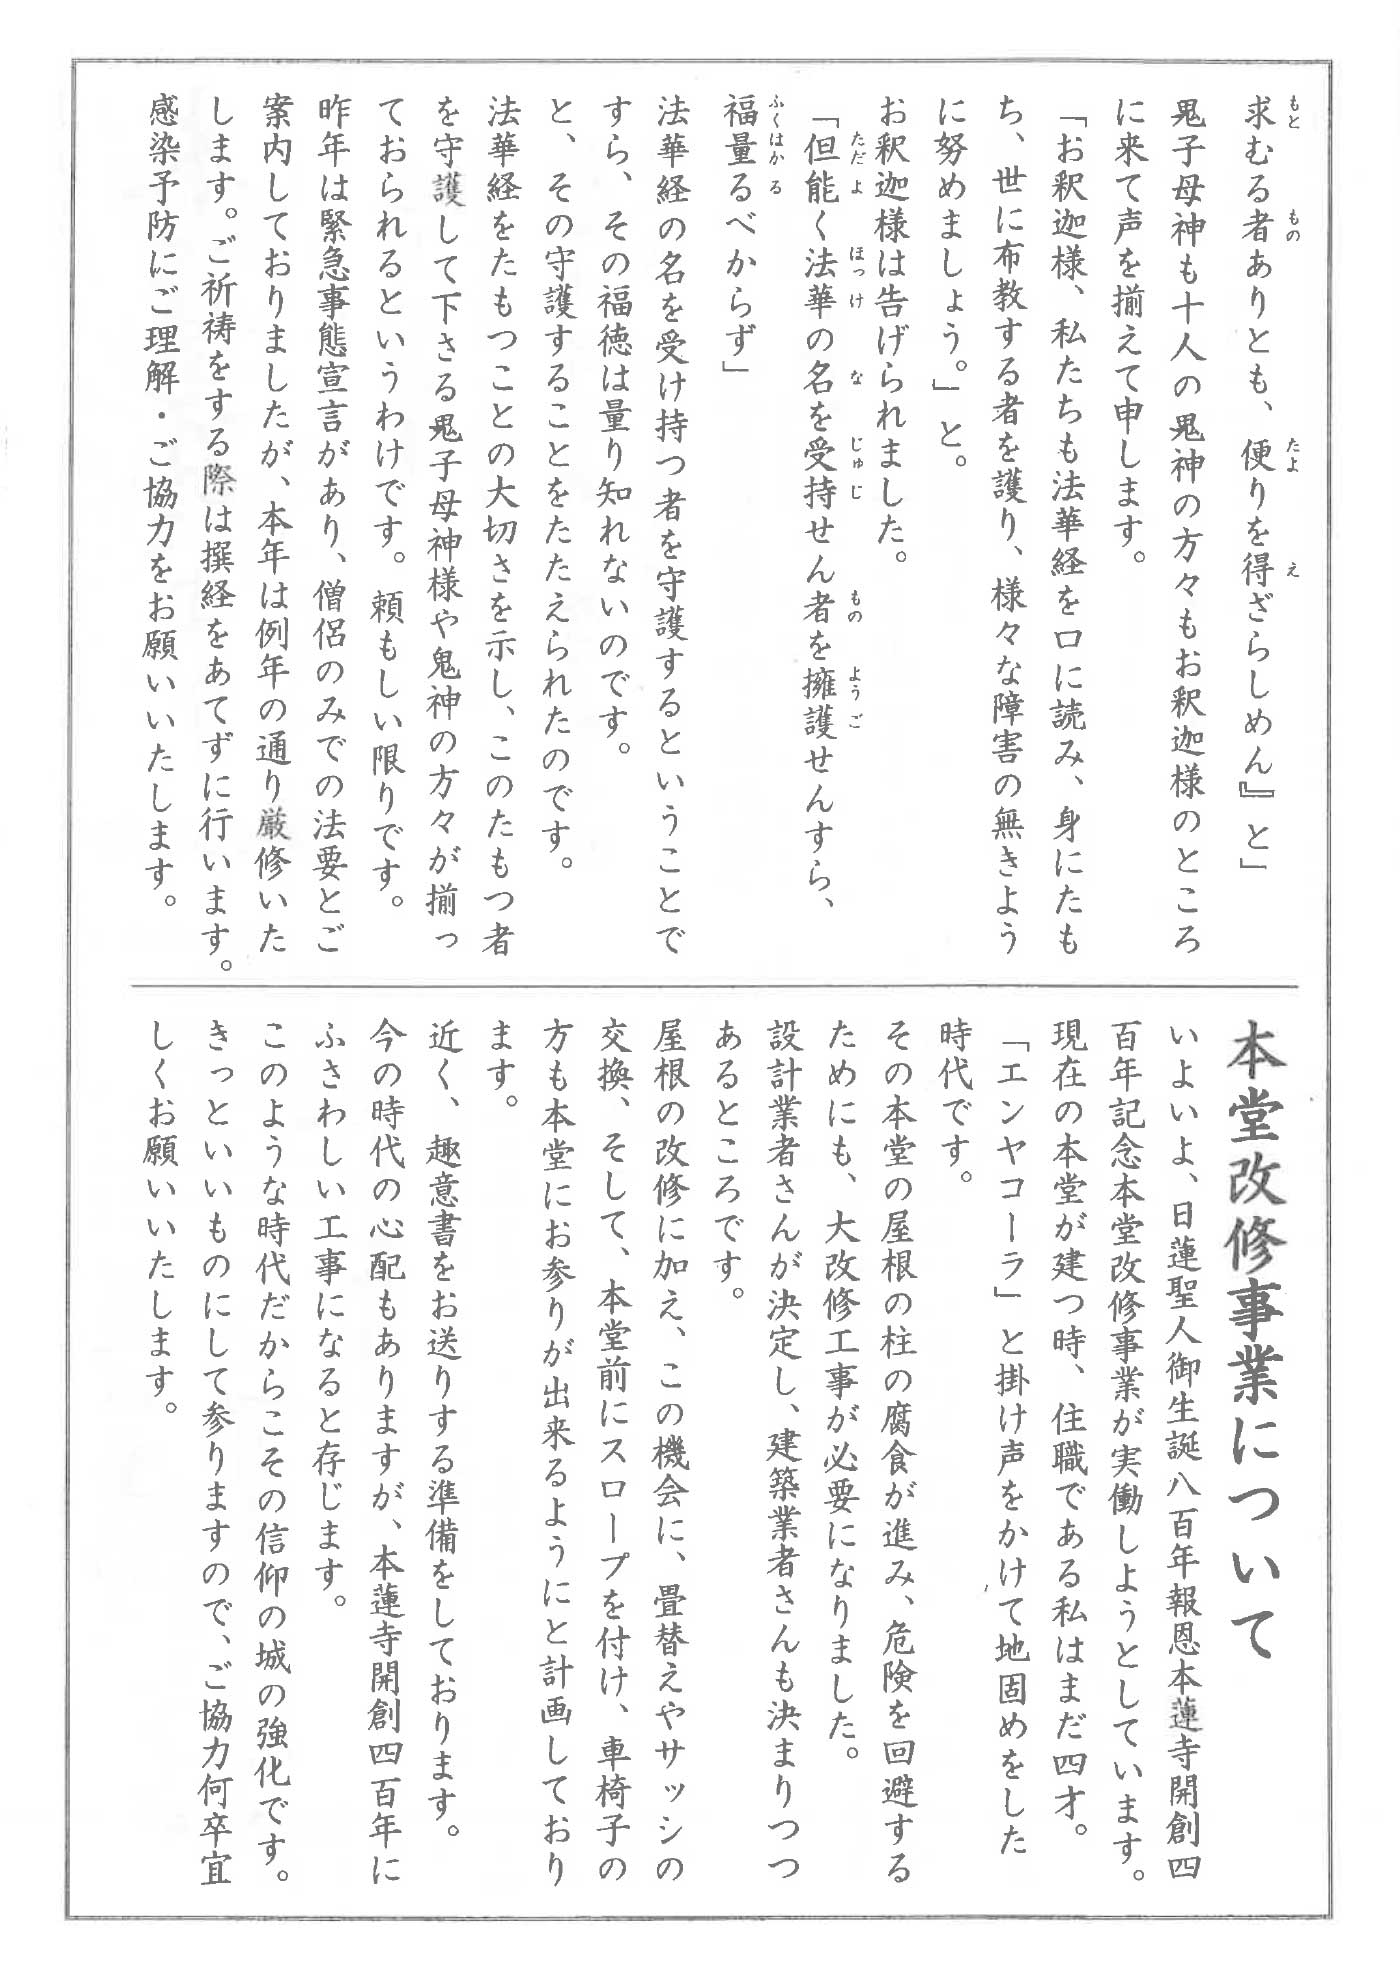 求むる者ありとも、便りを得ざらしめん』と」
鬼子母神も十人の鬼神の方々もお釈迦様のところ
に来て声を揃えて申します。
「お釈迦様、私たちも法華経を口に読み、身にたも
ち、世に布教する者を護り、様々な障害の無きよう
に努めましょう。」と。
お釈迦様は告げられました。
「但能く法華の名を受持せん者を擁護せんすら、
福量るべからず」
法華経の名を受け持つ者を守護するということで
すら、その福徳は量り知れないのです。
と、その守護することをたたえられたのです。
法華経をたもつことの大切さを示し、このたもつ者
を守護して下さる鬼子母神様や鬼神の方々が揃っ
ておられるというわけです。頼もしい限りです。
昨年は緊急事態宣言があり、僧侶のみでの法要とご
案内しておりましたが、本年は例年の通り厳修いた
します。ご祈祷をする際は撰経をあてずに行います。
感染予防にご理解・ご協力をお願いいたします。
本堂改修事業について
いよいよ、日蓮聖人御生誕八百年報恩本蓮寺開創四
百年記念本堂改修事業が実働しようとしています。
現在の本堂が建つ時、住職である私はまだ四才。
「エンヤコーラ」と掛け声をかけて地固めをした
時代です。
その本堂の屋根の柱の腐食が進み、危険を回避する
ためにも、大改修工事が必要になりました。
設計業者さんが決定し、建築業者さんも決まりつつ
あるところです。
屋根の改修に加え、この機会に、畳替えやサッシの
交換、そして、本堂前にスロープを付け、車椅子の
方も本堂にお参りが出来るようにと計画しており
ます。
近く、趣意書をお送りする準備をしております。
今の時代の心配もありますが、本蓮寺開創四百年に
ふさわしい工事になると存じます。
このような時代だからこその信仰の城の強化です。
きっといいものにして参りますので、ご協力何卒宜
しくお願いいたします。